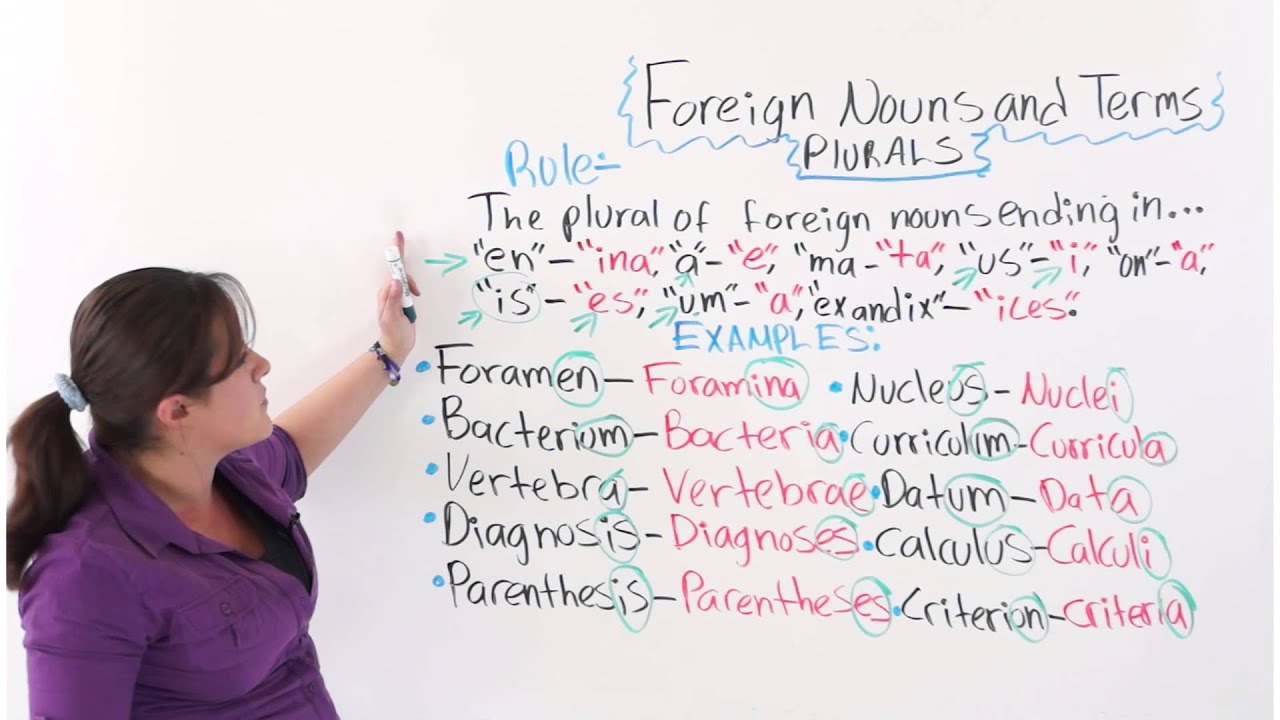 Foreign Nouns and Terms
PLURALS
Rule:-
The plural of foreign nouns ending in...
"en"-"ina", "a"-"e", "ma-"ta", "us"-"i", "on"-"a",
"is"-"es", "um"-"a", "ex and ix"-"ices".
EXAMPLES:
• Foramen - Foramina • Nucleus - Nuclei
• Bacterium - Bacteria • Curriculum - Curricula
• Vertebra - Vertebrae • Datum - Data
• Diagnosis - Diagnoses • Calculus - Calculi
• Parenthesis - Parentheses • Criterion - Criteria